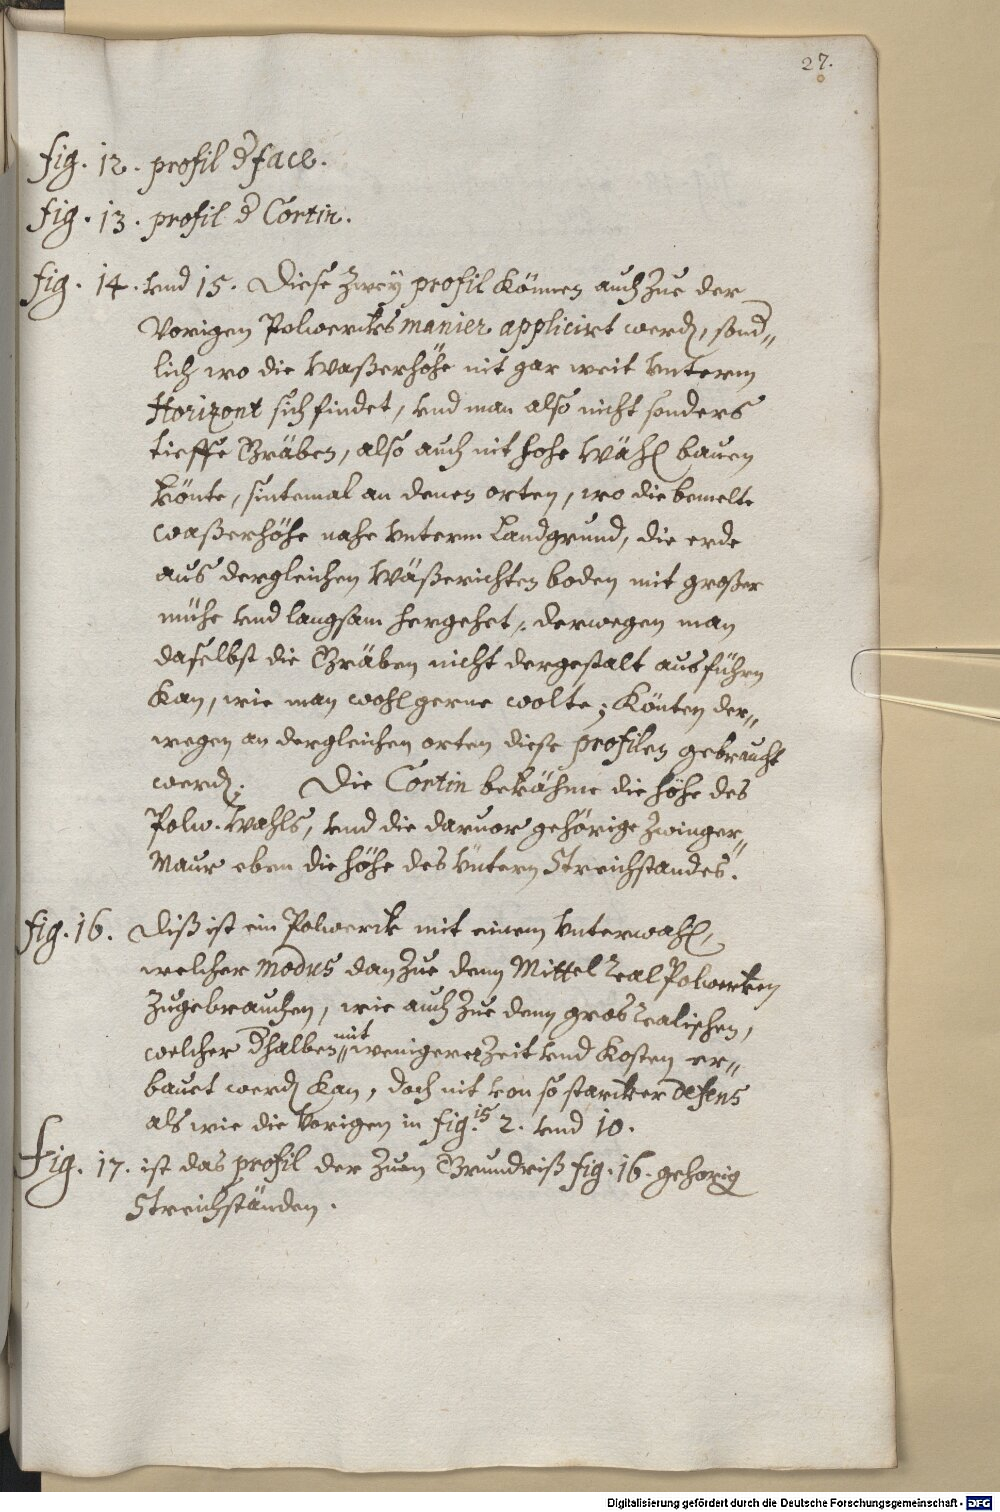 27.
fig. 12. profil d face.
fig. 13. profil d Cortin.
fig. 14. vnd 15. Diese Zwey profil können auch Zue der
Vorigen Polwercks manier applicirt werdn, sond=
lich wo die Waßerhöhe nit gar weit vnterm
Horizont sich findet, vnd man also nicht sonders
tieffe Gräben, also auch nit hohe Wähl bauen
könte, sintemal an denen orten, wo die bemelte
Waßerhöhe nahe vnterm Landgrund, die erde
aus dergleichen Wäßerichten boden mit großer
mühe vnd langsam hergehet, derwegen man
daselbst die Gräben nicht dergestalt ausführen
kan, wie man wohl gerne wolte; Könten der=
wegen an dergleichen orten diese profilen gebraucht
werdn. Die Cortin bekähme die höhe des
Polw. Wahls, vnd die daruor gehörige Zwinger=
Maur eben die höhe des vntern Streichstandes.
fig. 16. Diß ist ein Polwerck mit einem Vnterwahl,
welcher modus dan Zue denn Mittel Real Polwercken
Zugebrauchen, wie auch Zue denn gros realischen,
welcher dhalben mit weniger Zeit vnd Kosten er=
bauet werdn kan, doch nit von so starcker Defens
als wie die Vorigen in fig. 15 2. vnd 10.
Fig. 17. ist das profil der Zuem Grundriß fig. 16. gehörig
Streichständen.
Digitalisierung gefördert durch die Deutsche Forschungsgemeinschaft - DFG